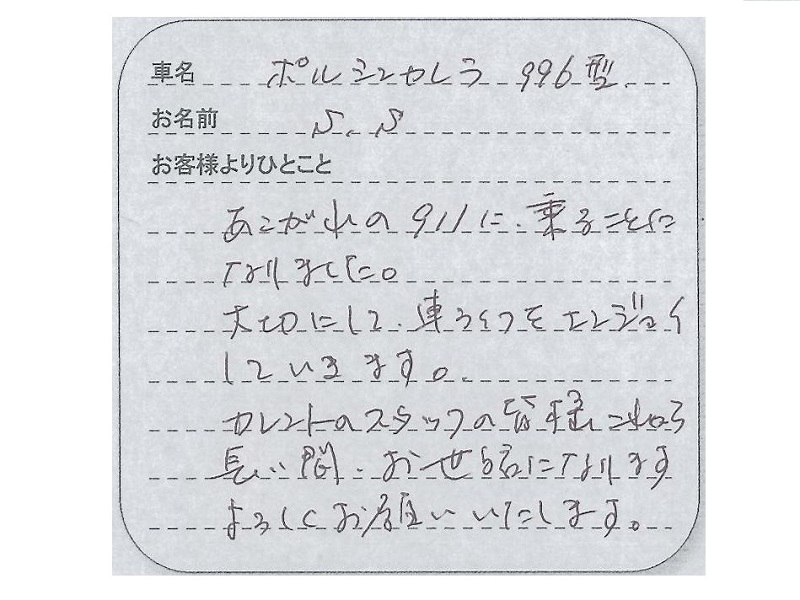 車名 ポルシェカレラ 996型.
お名前 S.S
お客様よりひとこと
あこがれの911に、乗ることに
なりました。
大切にして、車ライフをエンジョイ
していきます。
カレントのスタッフの皆様これから
長い間、お世話になります
よろしくお願いいたします。